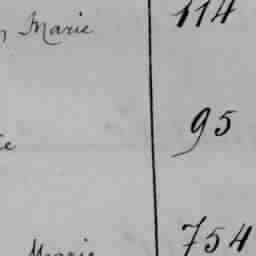 Marie 114
95
Marie 754